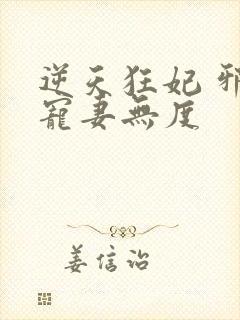 逆天狂妃 邪
寵妻無度
姜信诒